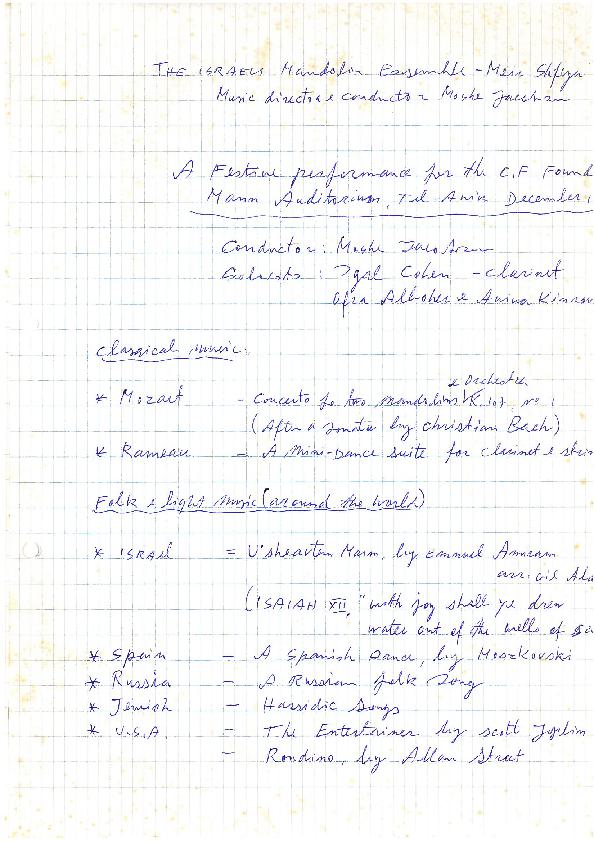 THE ISRAELI Mandolin Ensemble - Meir Shfeya
Music director & conductor Moshe Jacobson
A Festive performance for the C.F Found
Mann Auditorium, Tel Aviv December
Conductor: Moshe Jacobson
Soloists: Igal Cohen - clarinet
Ofra Alboher &
Classical music:
* Mozart - Concerto for two mandolins & Orchestra K. 107 no 1
(After a sonata by Christian Bach)
* Rameau - A Mini-Dance suite for clarinet & strin
Folk & light music (around the world)
* ISRAEL = U'sheavtem Maim, by Emanuel Amiram
arr. Gil Alda
(ISAIAH XII, "with joy shall ye draw
water out of the wells of sa
* Spain - A Spanish Dance, by Moszkovski
* Russia - A Russian folk Song
* Jewish - Hassidic Songs
* U.S.A - The Entertainer by Scott Joplin
- Rondino, by Allan Street